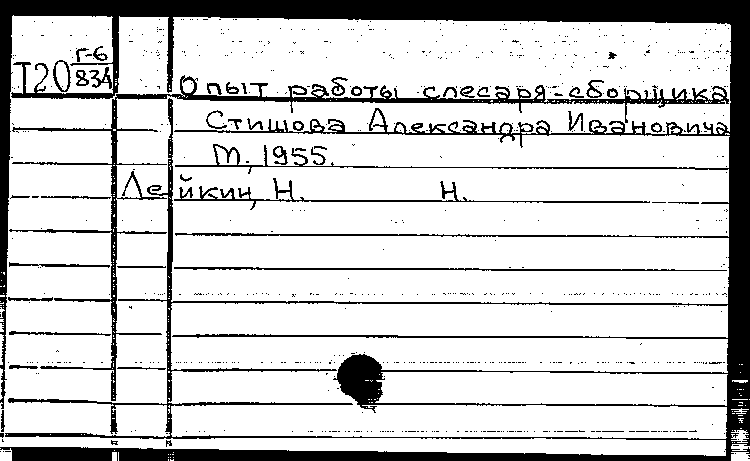 Т20 Г-6
834
Опыт работы слесаря-сборщика
Стишова Александра Ивановича
М., 1955.
Лейкин, Н. Н.